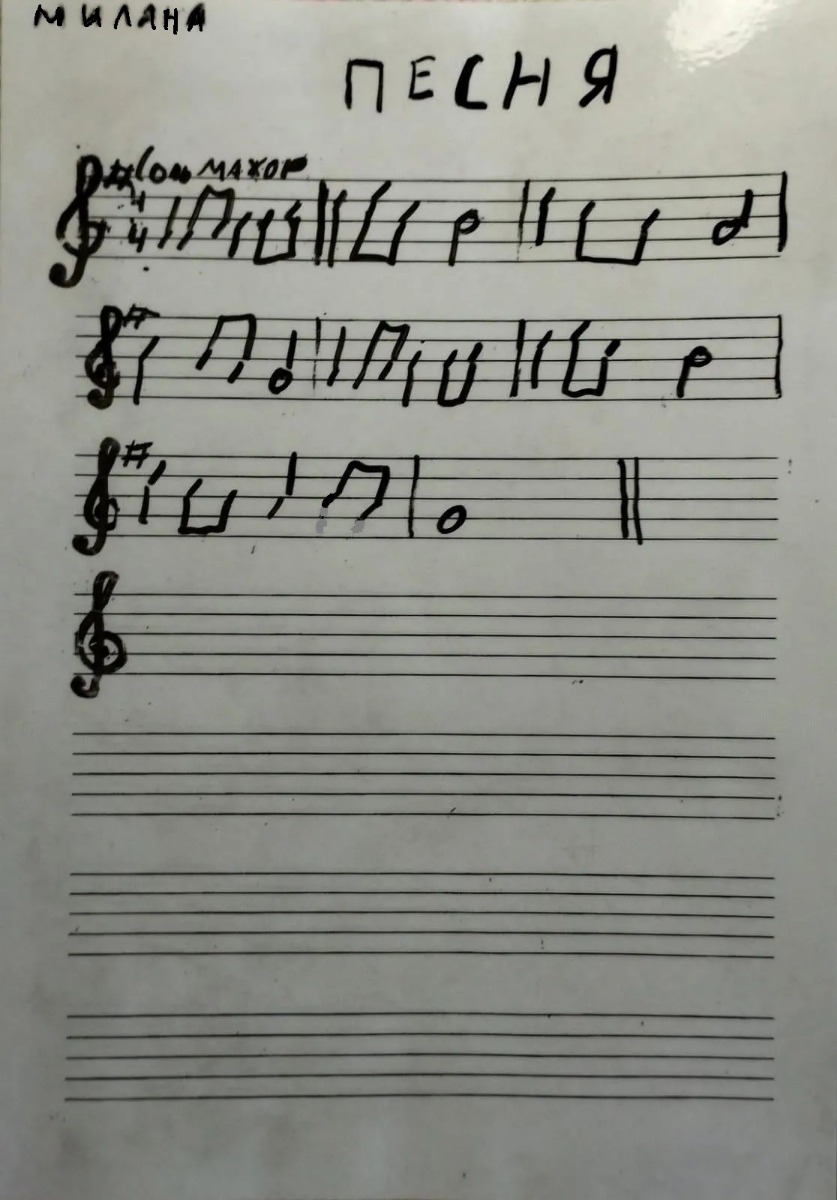 МИЛАНА
ПЕСНЯ
Соль мажор
4
4